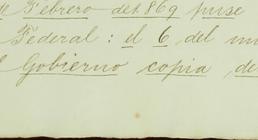 Febrero del 869 puse
Federal: el 6 del
Gobierno copia, de